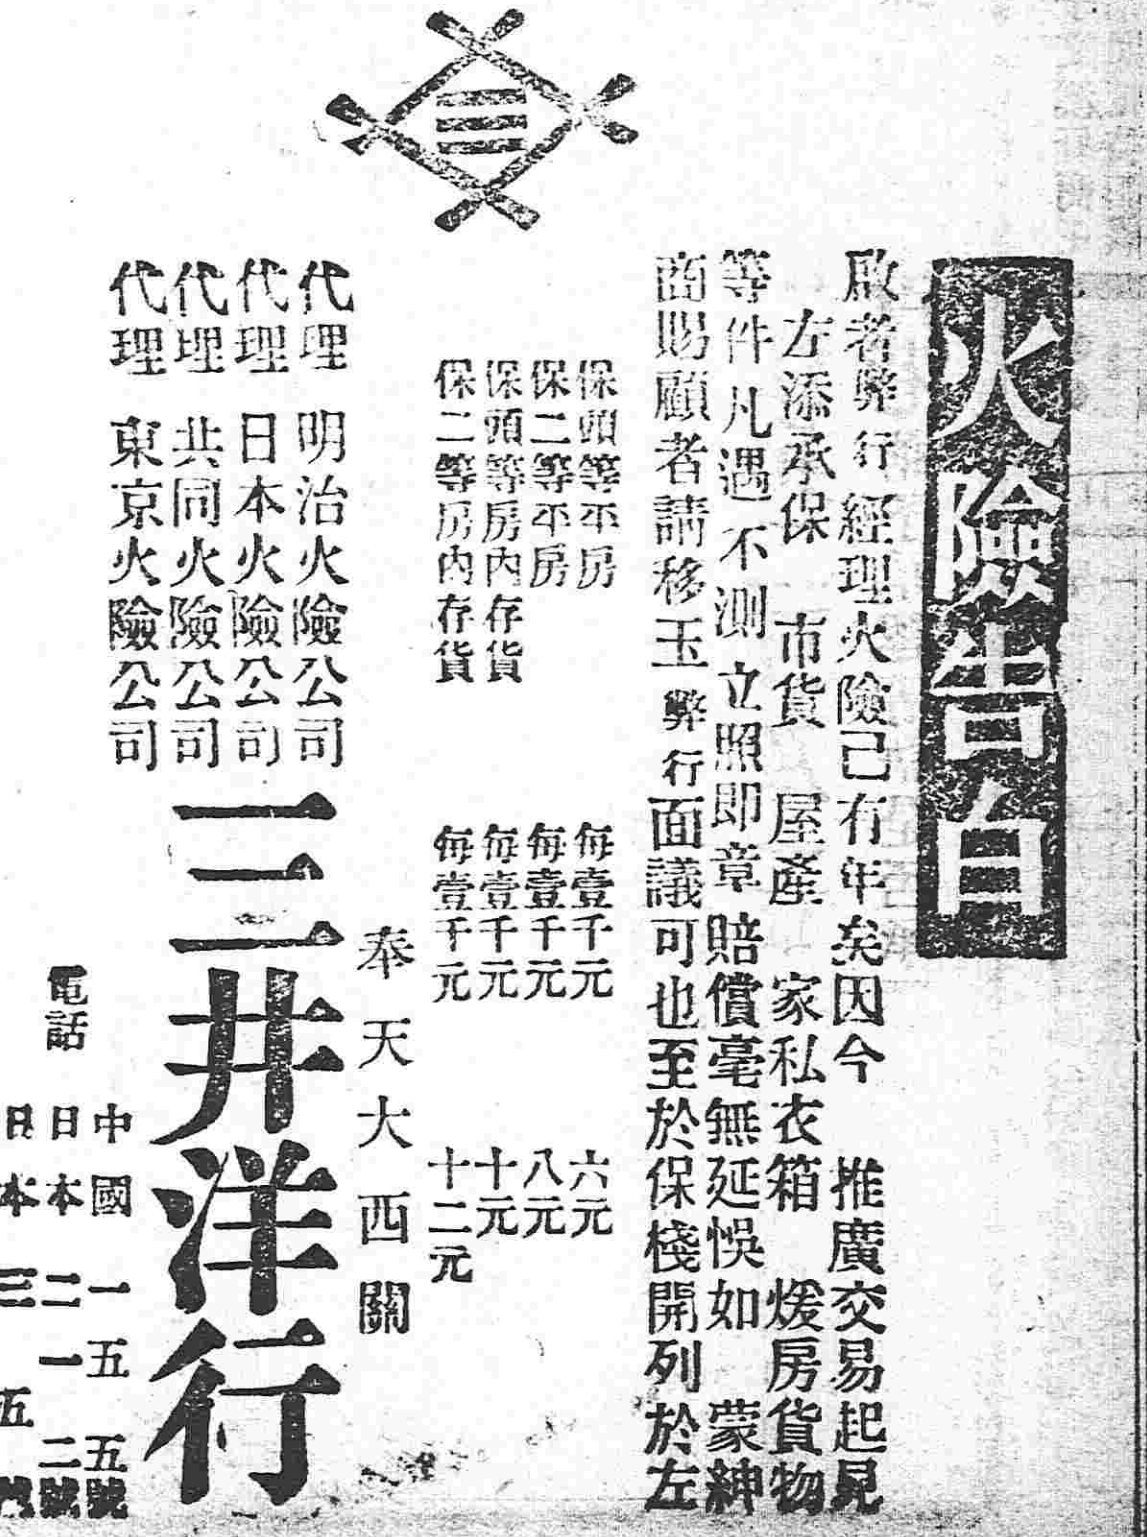 火險告白
啟者弊行經理火險已有年矣因今 推廣交易起見
左添承保 市貨 屋產 家私衣箱 煖房貨物
等件凡遇不测立照即章賠償毫無延悞如 蒙紳
商賜顧者請移玉弊行面議可也至於保棧開列於左
保頭等平房 每壹千元 六元
保二等平房 每壹千元 八元
保頭等房內存貨 每壹千元 十元
保二等房內存貨 每壹千元 十二元
奉天大西關
三井洋行
代理 明治火險公司
代理 日本火險公司
代理 共同火險公司
代理 東京火險公司
電話
中國 一五五號
日本 二一二號
日本 三五號